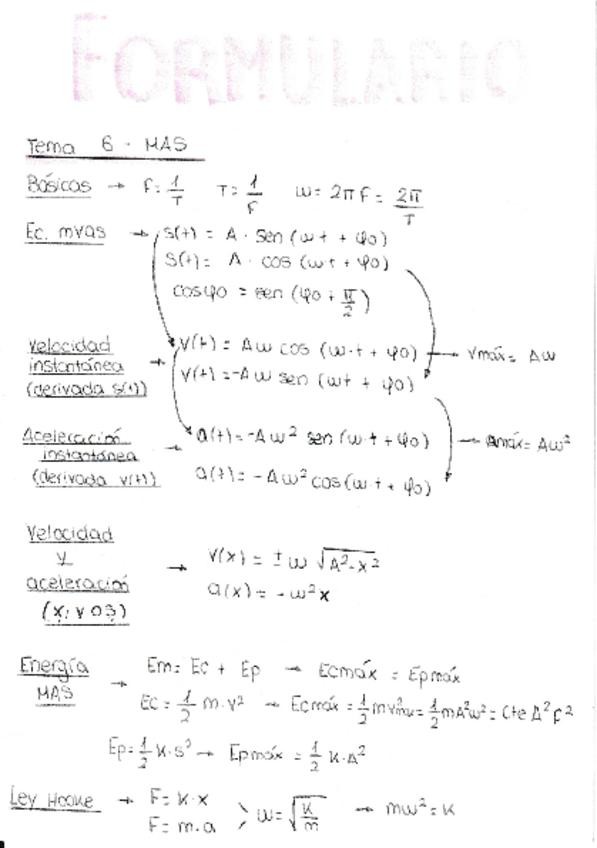 FORMULARIO
Tema 6 - MAS
Básicas → F = 1/T   T = 1/F   ω = 2πF = 2π/T
Ec. mvas → s(t) = A · sen (ωt + φ0)
s(t) = A · cos (ωt + φ0)
cosφ0 = sen (φ0 + π/2)
Velocidad
instantánea
(derivada s(t))
→ v(t) = Aω cos (ω·t + φ0) → vmáx = Aω
v(t) = -Aω sen (ωt + φ0)
Aceleración
instantánea
(derivada v(t))
→ a(t) = -Aω² sen (ω·t + φ0) → amáx = Aω²
a(t) = -Aω² cos (ω·t + φ0)
Velocidad
y
aceleración
→ v(x) = ± ω √A²-x²
a(x) = - ω²x
Energía
MAS
→ Em = Ec + Ep → Ecmáx = Epmáx
Ec = 1/2 m·v² → Ecmáx = 1/2 mv²max = 1/2 mA²ω² = Cte A² F²
Ep = 1/2 K·s² → Epmáx = 1/2 K·A²
Ley Hooke → F = K·x
F = m·a
ω = √K/m → mω² = K